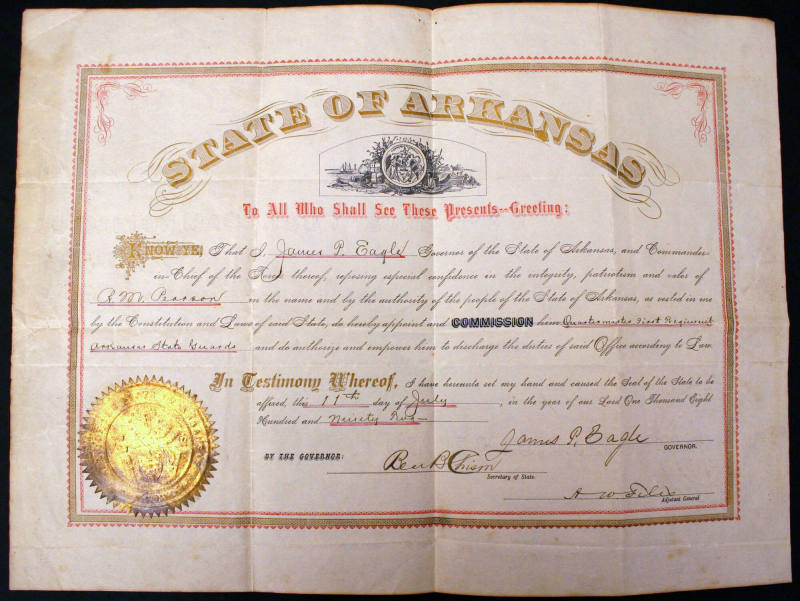 STATE OF ARKANSAS
To All Who Shall See These Presents--Greeting:
KNOW YE, That I, James P. Eagle Governor of the State of Arkansas, and Commander-
in-Chief of the thereof, reposing especial confidence in the integrity, patriotism and valor of
R. M. Pearson in the name and by the authority of the people of the State of Arkansas, as vested in me
by the Constitution and Laws of said State, do hereby appoint and COMMISSION him Quartermaster First Regiment
Arkansas State Guards and do authorize and empower him to discharge the duties of said Office according to Law.
In Testimony Whereof, I have hereunto set my hand and caused the Seal of the State to be
affixed, this 11th day of July, in the year of our Lord One Thousand Eight
Hundred and Ninety Two
James P. Eagle
GOVERNOR.
BY THE GOVERNOR:
Ben B Chism
Secretary of State.
Adjutant General